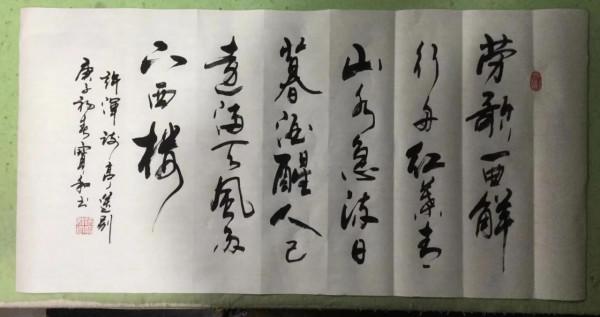 劳歌一曲解
行舟红叶青
山水急流日
暮酒醒人已
远满天风雨
下西楼
许浑谢亭送别
庚子初春宝和书